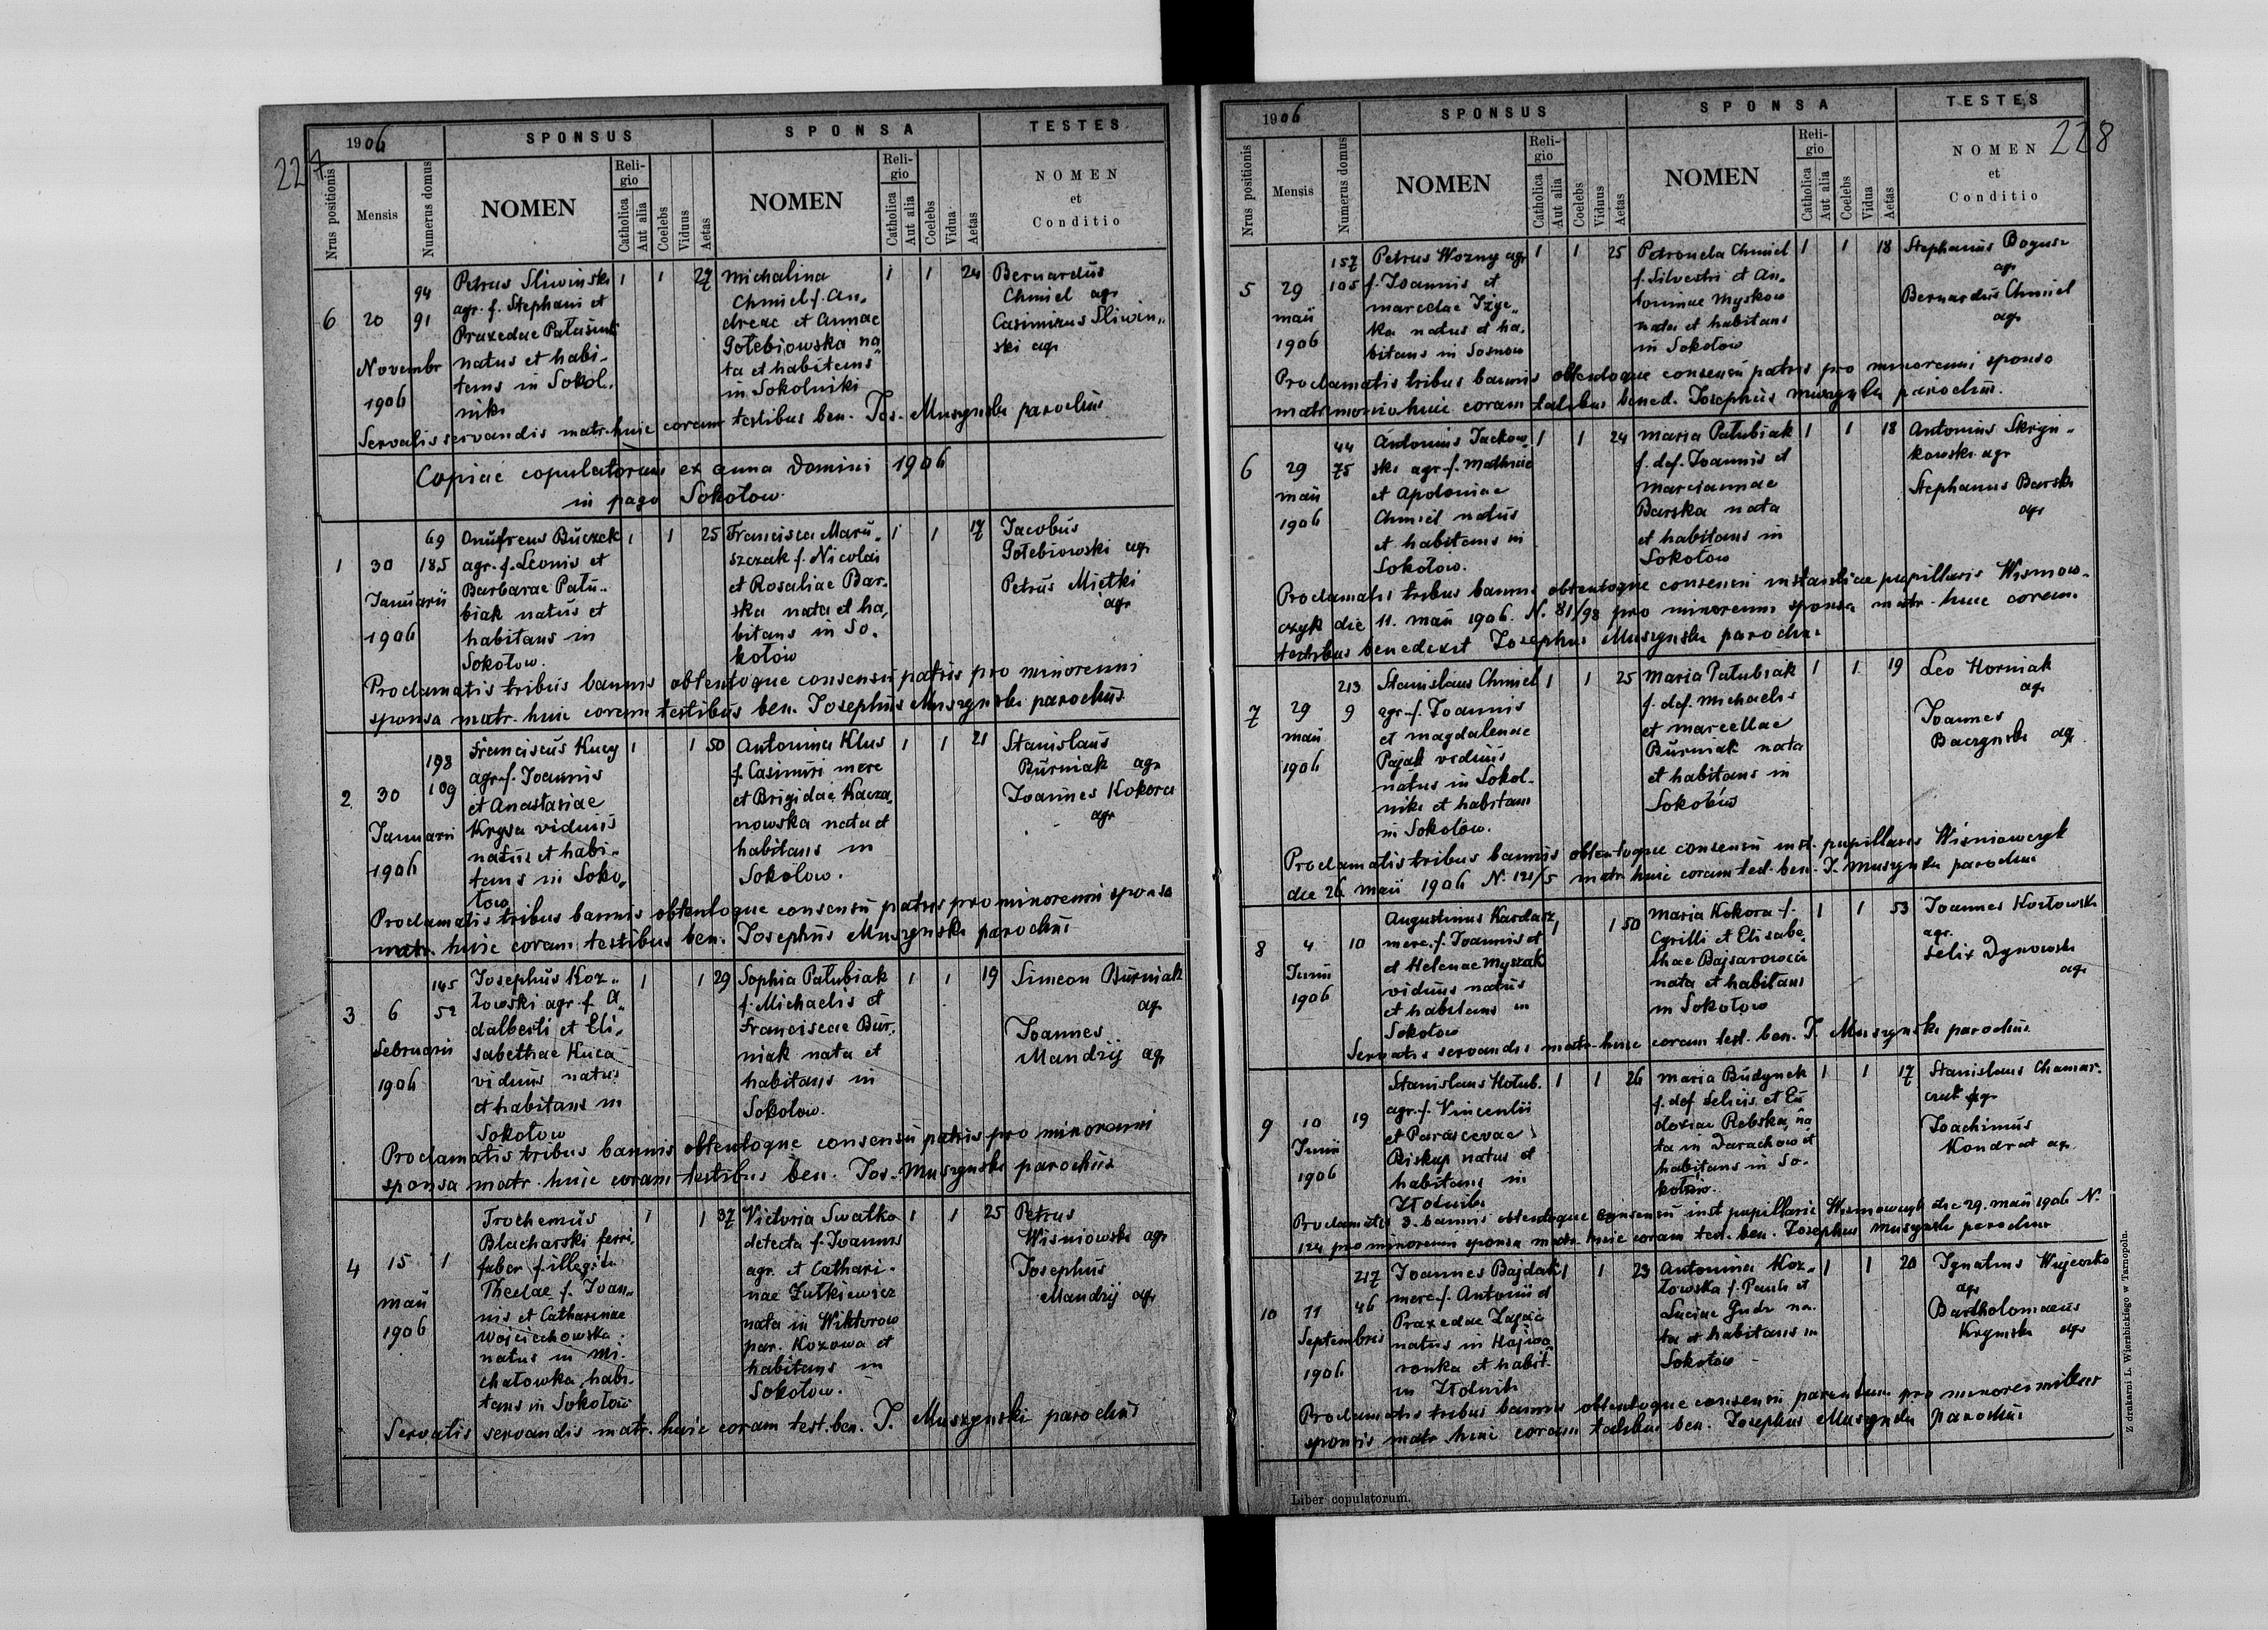 227
1906
SPONSUS
SPONSA
TESTES
Nrus positionis
Mensis
Numerus domus
NOMEN
Religio
Catholica
Aut alia
Coelebs
Viduus
Aetas
NOMEN
Religio
Catholica
Aut alia
Coelebs
Vidua
Aetas
NOMEN
et
Conditio
6
20
Novembr
1906
94
91
Petrus Sliwinski
agr. f. Stephani et
Praxedae
natus et habi-
tans in Sokol-
niki
1 1 27
Michalina
Chmiel f. An„
dreae et Annae
Gołebiowska na
ta et habitans
in Sokolniki
1 1 24
Bernardus
Chmiel agr
Casimirus Sliwin„
ski agr
Servatis servandis matr. huic coram testibus ben. Jos. Muszynski parochus
Copiae copulatorum ex anno Domini 1906
in pago Sokołow
1
30
Januarii
1906
69
185
Onufreus Buczek
agr. f. Leonis et
Barbarae Patu-
biak natus et
habitans in
Sokołow.
1 1 25
Francisca Maru„
szczak f. Nicolai
et Rosaliae Bar-
ska nata et ha,
bitans in So.
kołow
1 1 17
Jacobus
Gołebiowski agr
Petrus Mietki
agr
Proclamatis tribus bannis obtentoque consensu patris pro minorenni
sponsa matr. huic coram testibus ben. Josephus Muszynski parochus
2
30
Januarii
1906
198
109
Franciscus Kucy
agr. f. Joannis
et Anastasiae
Krysa viduus
natus et habi-
tans in Soko,
łow
1 1 50
Antonina Klus
f. Casimiri merc
et Brigidae Kacza,
nowska nata et
habitans in
Sokołow.
1 1 21
Stanislaus
Burniak agr
Joannes Kokora
agr
Proclamatis tribus bannis obtentoque consensu patris pro minorenni sponsa
matr. huic coram testibus ben. Josephus Muszynski parochus
3
6
Februarii
1906
145
52
Josephus Koz„
łowski agr. f. A
dalberti et Eli,
sabethae Kuca
viduus natus
et habitans in
Sokołow
1 1 29
Sophia Patubiak
f. Michaelis et
Franciscae Bur,
niak nata et
habitans in
Sokołow.
1 1 19
Simeon Burniak
agr
Joannes
Mandzij agr
Proclamatis tribus bannis obtentoque consensu patris pro minorenni
sponsa matr. huic coram testibus ben. Jos. Muszynski parochus
4
15
maii
1906
1
Trochemus
Blacharski ferri,
faber f. illegit.
Theclae f. Joan„
nis et Catharinae
Wojciechowska
natus in Mi-
chałowka habi-
tans in Sokołow
1 1 37
Victoria Swatko
detecta f. Joannis
agr. et Cathari-
nae Zutkiewicz
nata in Wiktorow
par. Kozowa et
habitans in
Sokołow.
1 1 25
Petrus
Wisniowski agr
Josephus
Mandzij agr
Servatis servandis matr. huic coram test. ben. J. Muszynski parochus
228
1906
SPONSUS
SPONSA
TESTES
Nrus positionis
Mensis
Numerus domus
NOMEN
Religio
Catholica
Aut alia
Coelebs
Viduus
Aetas
NOMEN
Religio
Catholica
Aut alia
Coelebs
Vidua
Aetas
NOMEN
et
Conditio
5
29
maii
1906
157
105
Petrus Wozny agr
f. Joannis et
marcelae Izye-
ka natus et ha,
bitans in Sosnow
1 1 25
Petronela Chmiel
f. Silvestri et An„
toninae Myskow
nata et habitans
in Sokołow
1 1 18
Stephanus Bogusz
agr
Bernardus Chmiel
agr
Proclamatis tribus bannis obtentoque consensu patris pro minorenni sponsa
matrimonio huic coram testibus bened. Josephus Muszynski parochus.
6
29
maii
1906
44
75
Antonius Jackow„
ski agr. f. Mathiae
et Apoloniae
Chmiel natus
et habitans in
Sokołow.
1 1 24
Maria Patubiak
f. def. Joannis et
Mariannae
Barska nata
et habitans in
Sokołow
1 1 18
Antonius Skrzyn„
kowski agr
Stephanus Barski
agr
Proclamatis tribus bannis obtentoque consensu instantiae pupillaris Wisniow-
czyk die 11. maii 1906. N. 81/98 pro minorenni sponsa matr. huic coram
testibus benedixit Josephus Muszynski parochus
7
29
maii
1906
213
9
Stanislaus Chmiel
agr. f. Joannis
et Magdalenae
Pajak viduus
natus in Sokol-
niki et habitans
in Sokołow.
1 1 25
Maria Patubiak
f. def. Michaelis
et Marcellae
Burniak nata
et habitans in
Sokołow
1 1 19
Leo Horniak
agr
Joannes
Baczynski agr
Proclamatis tribus bannis obtentoque consensu inst. pupillaris Wisniowczyk
die 26 maii 1906 N. 121/5 matr. huic coram test. ben. J. Muszynski parochus
8
4
Junii
1906
10
Augustinus Kardasz
merc. f. Joannis et
et Helenae Myszak
viduus natus
et habitans in
Sokołow
1 1 50
Maria Kokora f.
Cyrilli et Elisabe,
thae Bajsarowicz
nata et habitans
in Sokołow
1 1 53
Joannes Kozłowski
agr.
Felix Dynowski
agr
Servatis servandis matr. huic coram test. ben. J. Muszynski parochus
9
10
Junii
1906
19
Stanislaus Hołub.
agr. f. Vincentii
et Parascevae
Biskup natus et
habitans in
Złotniki
1 1 26
Maria Budynek
f. def. Felicis et Eu
doxiae Rebska, na
ta in Darachow et
habitans in So-
kołow.
1 1 17
Stanislaus Chamar-
czuk agr
Joachimus
Kondrat agr
Proclamatis 3. bannis obtentoque consensu inst pupillaris Wisniowczyk die 29. maii 1906 N.
124 pro minorenni sponsa matr. huic coram test. ben. Josephus Muszynski parochus
10
11
Septembris
1906
217
46
Joannes Bajdak
merc. f. Antonii et
Praxedae Zajac
natus in Hajwo
ronka et habit.
in Złotniki
1 1 23
Antonina Koz-
łowska f. Pauli et
Luciae Gudz na-
ta et habitans in
Sokołow
1 1 20
Ignatius Wujcosko
agr
Bartholomaeus
Krymski agr
Proclamatis tribus bannis obtentoque consensu parentum pro minorennibus
sponsis matr huic coram testibus ben. Josephus Muszynski parochus
Liber copulatorum.
Z drukarni L. Wierzbickiego w Tarnopolu.